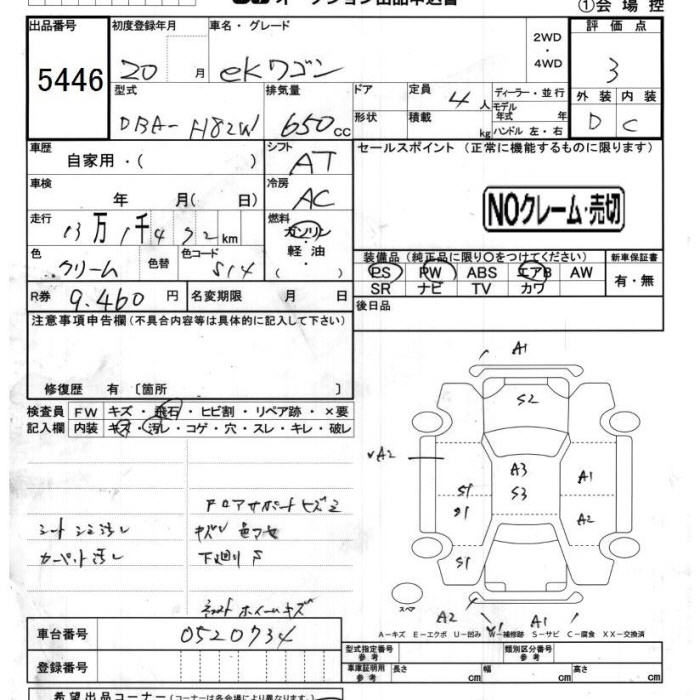 オークション出品申込書
①会場控
出品番号 初度登録年月 車名・グレード 評価点
5446 20 月 ekワゴン 2WD・4WD 3
型式 排気量 ドア 定員 4 人 ディーラー・並行 外装 内装
DBA-H82W 650 cc 形状 積載 kg モデル年式 年 ハンドル 左・右 D C
車歴 自家用・( ) シフト AT セールスポイント (正常に機能するものに限ります)
車検 年 月( 日) 冷房 AC
NOクレーム・売切
走行 13万1千492km 燃料 ガソリン
色 クリーム 色替 色コード S14 軽油 ( )
装備品 (純正品に限り○をつけてください) 新車保証書
PS PW ABS エアB AW 有・無
SR ナビ TV カワ
R券 9.460 円 名変期限 月 日 後日品
注意事項申告欄 (不具合内容等は具体的に記入して下さい)
修復歴 有 〔箇所 〕
検査員 FW キズ・飛石・ヒビ割・リペア跡・×要
記入欄 内装 キズ・汚レ・コゲ・穴・スレ・キレ・破レ
A1
S2
A2
A3
S3
A1
A2
S1
S1
S1
シートシミ汚レ
カーペット汚レ
下廻りS
ホイールキズ
スペア
A2 W1 A1
A-キズ E-エクボ U-凹み W-補修跡 S-サビ C-腐食 XX-交換済
車台番号 0520734
型式指定番号 参考 類別区分番号 参考
登録番号 車庫証明用 参考 長さ cm 幅 cm 高さ cm
希望出品コーナー (コーナーは各会場により異なります)